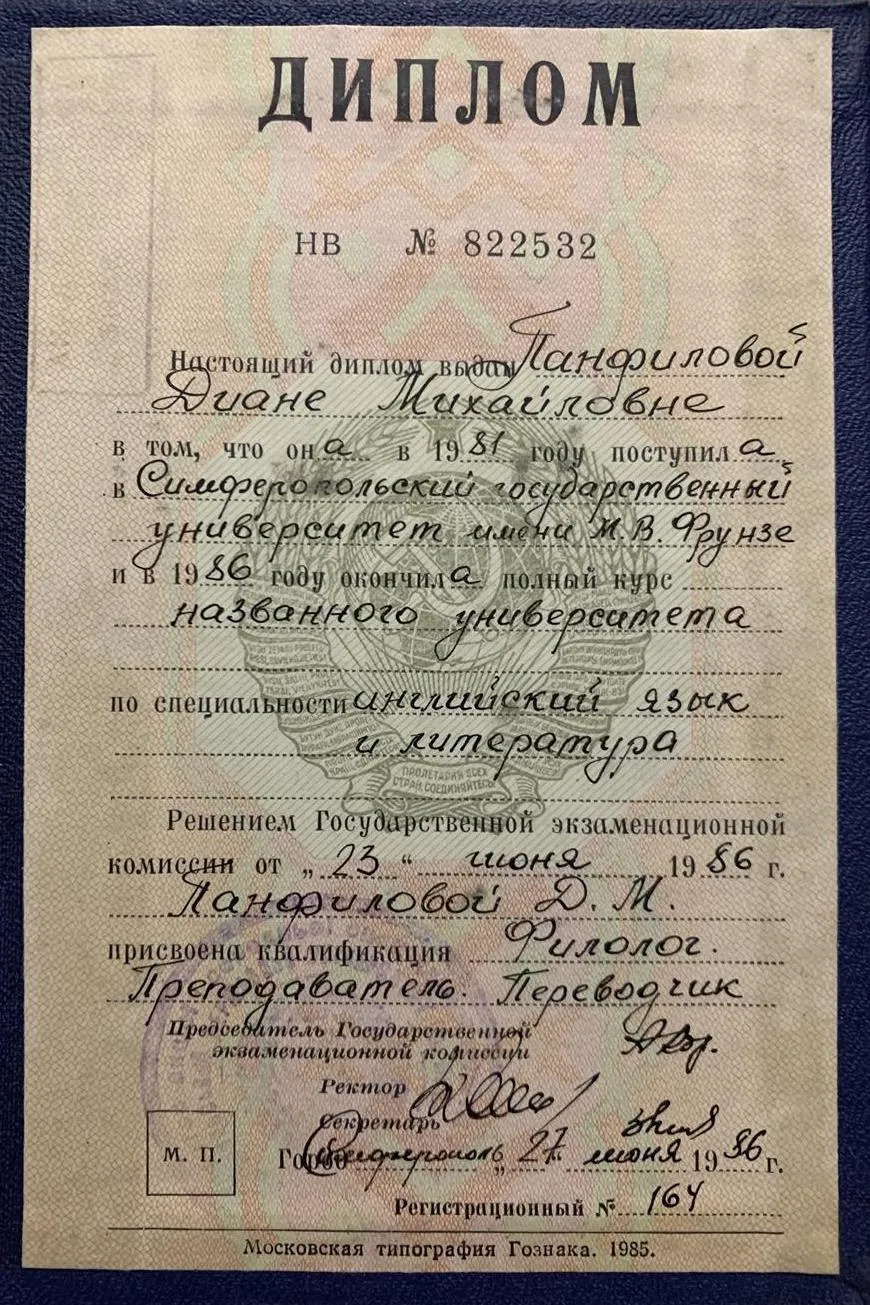 ДИПЛОМ
НВ № 822532
Настоящий диплом выдан Панфиловой
Диане Михайловне
в том, что она в 1981 году поступила
в Симферопольский государственный
университет имени М.В. Фрунзе
и в 1986 году окончила полный курс
названного университета
по специальности английский язык
и литература
Решением Государственной экзаменационной
комиссии от „23“ июня 1986 г.
Панфиловой Д. М.
присвоена квалификация Филолог.
Преподаватель. Переводчик
Председатель Государственной
экзаменационной комиссии
Ректор
Секретарь
М. П.
Город Симферополь „27 июня 1986 г.
Регистрационный № 164
Московская типография Гознака. 1985.
ПРОЛЕТАРИИ ВСЕХ
СТРАН, СОЕДИНЯЙТЕСЬ!